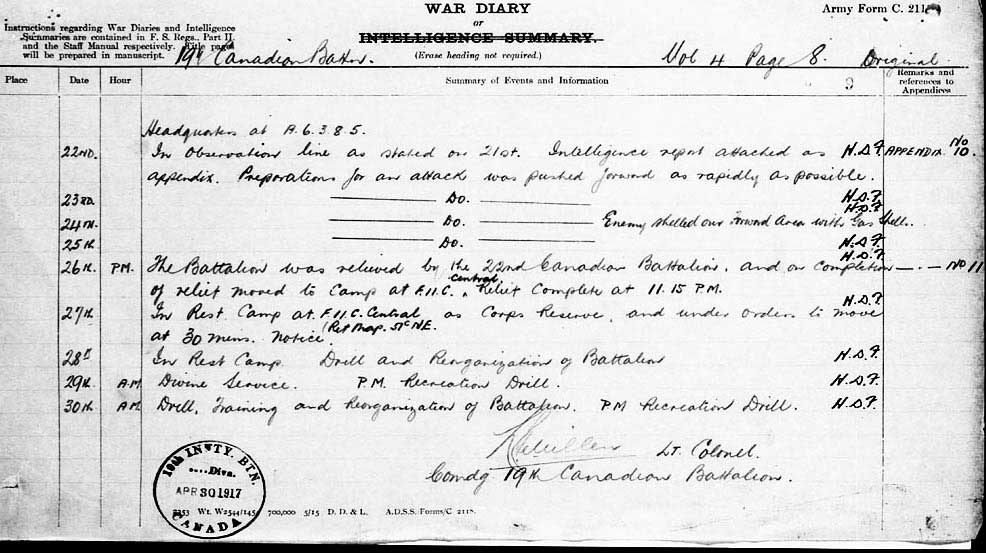 WAR DIARY
or
INTELLIGENCE SUMMARY.
(Erase heading not required.)
Army Form C. 211
Instructions regarding War Diaries and Intelligence
Summaries are contained in F. S. Regs., Part II.
and the Staff Manual respectively. Title pages
will be prepared in manuscript.
19th Canadian Battn.
Vol 4 Page 8. Original
Place Date Hour Summary of Events and Information Remarks and references to Appendices
Headquarters at A.6.3.8.5.
22ND. In Observation line as stated on 21st. Intelligence report attached as H.D.F. APPENDIX No 10.
appendix. Preparations for an attack was pushed forward as rapidly as possible.
23RD. Do. H.D.F.
24TH. Do. Enemy shelled our Forward Area with Gas Shell. H.D.F.
25th Do. H.D.F.
26th. PM. The Battalion was relieved by the 22nd Canadian Battalion, and on completion H.D.F. No 11
of relief moved to Camp at F.11.C. central, Relief Complete at 11.15 P.M.
27th In Rest Camp at F.11.C. Central as Corps Reserve, and under orders to move H.D.F.
at 30 mins. Notice. (Ref Map. 51c NE.
28th In Rest Camp Drill and Reorganization of Battalion H.D.F.
29th. A.M. Divine Service. P.M. Recreation Drill. H.D.F.
30th. A.M. Drill, Training and Reorganization of Battalion. PM Recreation Drill. H.D.F.
Lt. Colonel.
Comdg 19th Canadian Battalion.
19th INFTY. BTN.
....Divn.
APR 30 1917
CANADA
2353 Wt. W2544/1454 700,000 5/15 D. D. & L. A.D.S.S./Forms/C. 2118.